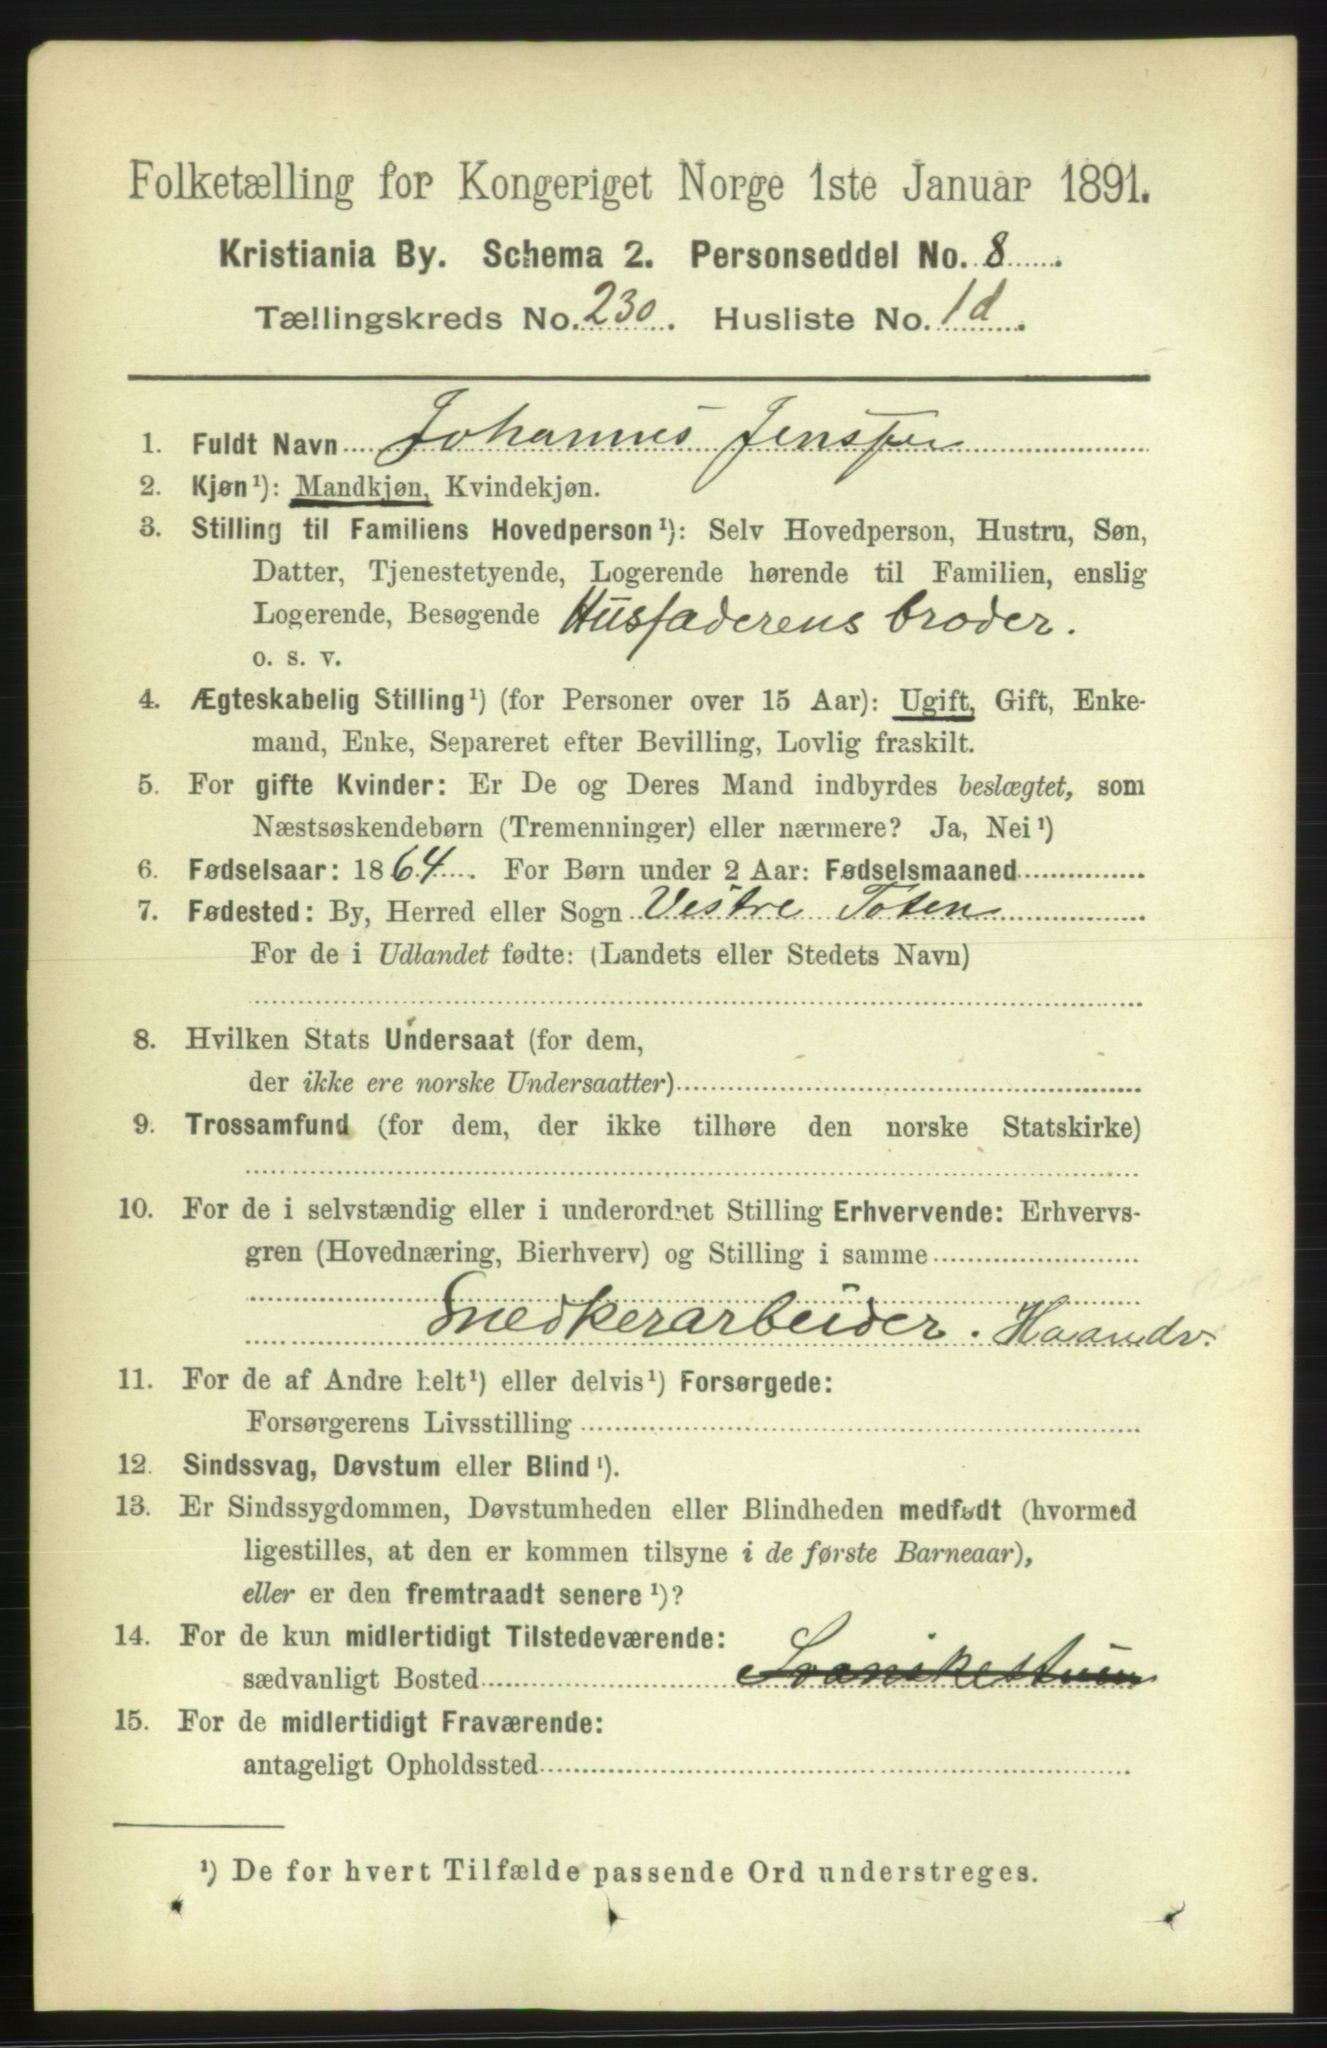 Folketælling for Kongeriget Norge 1ste Januar 1891.
Kristiania By. Schema 2. Personseddel No. 8.
Tællingskreds No. 230. Husliste No. 1d.
1. Fuldt Navn Johannes Jenssen
2. Kjøn¹): Mandkjøn, Kvindekjøn.
3. Stilling til Familiens Hovedperson¹): Selv Hovedperson, Hustru, Søn,
Datter, Tjenestetyende, Logerende hørende til Familien, enslig
Logerende, Besøgende Husfaderens broder.
o. s. v.
4. Ægteskabelig Stilling¹) (for Personer over 15 Aar): Ugift, Gift, Enke-
mand, Enke, Separeret efter Bevilling, Lovlig fraskilt.
5. For gifte Kvinder: Er De og Deres Mand indbyrdes beslægtet, som
Næstsøskendebørn (Tremenninger) eller nærmere? Ja, Nei¹)
6. Fødselsaar: 1864. For Børn under 2 Aar: Fødselsmaaned
7. Fødested: By, Herred eller Sogn Vestre Toten
For de i Udlandet fødte: (Landets eller Stedets Navn)
8. Hvilken Stats Undersaat (for dem,
der ikke ere norske Undersaatter)
9. Trossamfund (for dem, der ikke tilhøre den norske Statskirke)
10. For de i selvstændig eller i underordnet Stilling Erhvervende: Erhvervs-
gren (Hovednæring, Bierhverv) og Stilling i samme
Snedkerarbeider. Haandv.
11. For de af Andre helt¹) eller delvis¹) Forsørgede:
Forsørgerens Livsstilling
12. Sindssvag, Døvstum eller Blind¹).
13. Er Sindssygdommen, Døvstumheden eller Blindheden medfødt (hvormed
ligestilles, at den er kommen tilsyne i de første Barneaar),
eller er den fremtraadt senere¹)?
14. For de kun midlertidigt Tilstedeværende:
sædvanligt Bosted
15. For de midlertidigt Fraværende:
antageligt Opholdssted
¹) De for hvert Tilfælde passende Ord understreges.